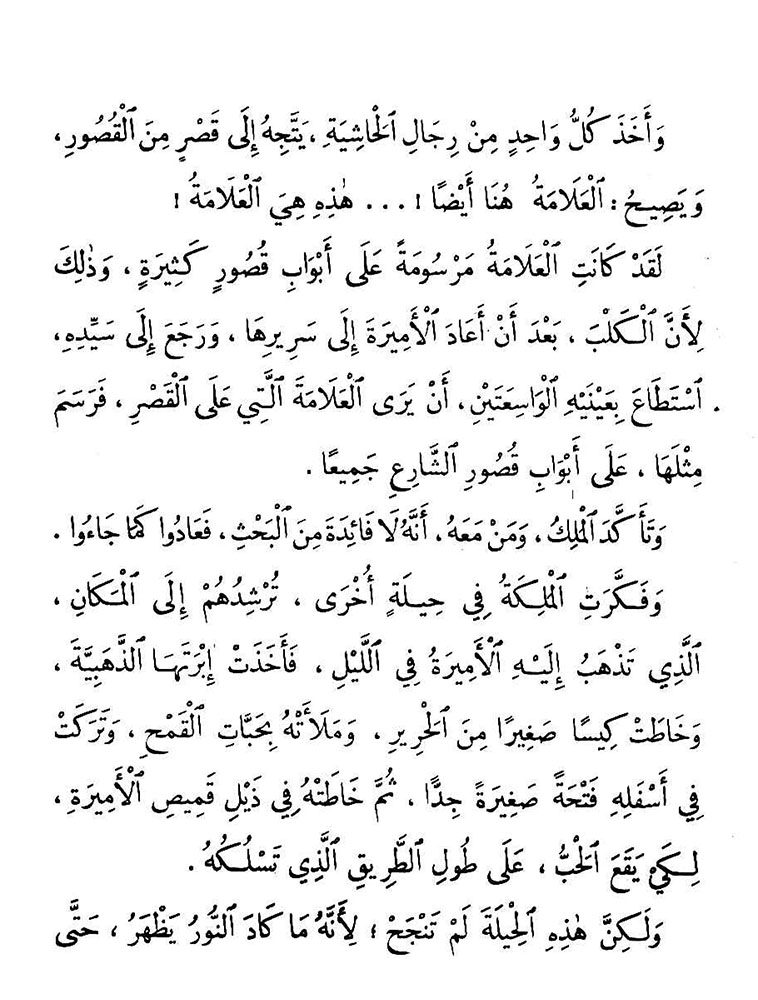 وَأَخَذَ كُلُّ وَاحِدٍ مِنْ رِجَالِ ٱلْحَاشِيَةِ ، يَتَّجِهُ إِلَى قَصْرٍ مِنَ ٱلْقُصُورِ ،
وَيَصِيحُ : ٱلْعَلَامَةُ هُنَا أَيْضًا ! ... هٰذِهِ هِيَ ٱلْعَلَامَةُ !
لَقَدْ كَانَتِ ٱلْعَلَامَةُ مَرْسُومَةً عَلَى أَبْوَابِ قُصُورٍ كَثِيرَةٍ ، وَذٰلِكَ
لِأَنَّ ٱلْكَلْبَ ، بَعْدَ أَنْ أَعَادَ ٱلْأَمِيرَةَ إِلَى سَرِيرِهَا ، وَرَجَعَ إِلَى سَيِّدِهِ ،
ٱسْتَطَاعَ بِعَيْنَيْهِ ٱلْوَاسِعَتَيْنِ ، أَنْ يَرَى ٱلْعَلَامَةَ ٱلَّتِي عَلَى ٱلْقَصْرِ ، فَرَسَمَ
مِثْلَهَا ، عَلَى أَبْوَابِ قُصُورِ ٱلشَّارِعِ جَمِيعًا .
وَتَأَكَّدَ ٱلْمَلِكُ ، وَمَنْ مَعَهُ ، أَنَّهُ لَا فَائِدَةَ مِنَ ٱلْبَحْثِ ، فَعَادُوا كَمَا جَاءُوا .
وَفَكَّرَتِ ٱلْمَلِكَةُ فِي حِيلَةٍ أُخْرَى ، تُرْشِدُهُمْ إِلَى ٱلْمَكَانِ ،
ٱلَّذِي تَذْهَبُ إِلَيْهِ ٱلْأَمِيرَةُ فِي ٱللَّيْلِ ، فَأَخَذَتْ إِبْرَتَهَا ٱلذَّهَبِيَّةَ ،
وَخَاطَتْ كِيسًا صَغِيرًا مِنَ ٱلْحَرِيرِ ، وَمَلَأَتْهُ بِحَبَّاتِ ٱلْقَمْحِ ، وَتَرَكَتْ
فِي أَسْفَلِهِ فَتْحَةً صَغِيرَةً جِدًّا ، ثُمَّ خَاطَتْهُ فِي ذَيْلِ قَمِيصِ ٱلْأَمِيرَةِ ،
لِكَيْ يَقَعَ ٱلْحَبُّ ، عَلَى طُولِ ٱلطَّرِيقِ ٱلَّذِي تَسْلُكُهُ .
وَلٰكِنَّ هٰذِهِ ٱلْحِيلَةَ لَمْ تَنْجَحْ ؛ لِأَنَّهُ مَا كَادَ ٱلنُّورُ يَظْهَرُ ، حَتَّى